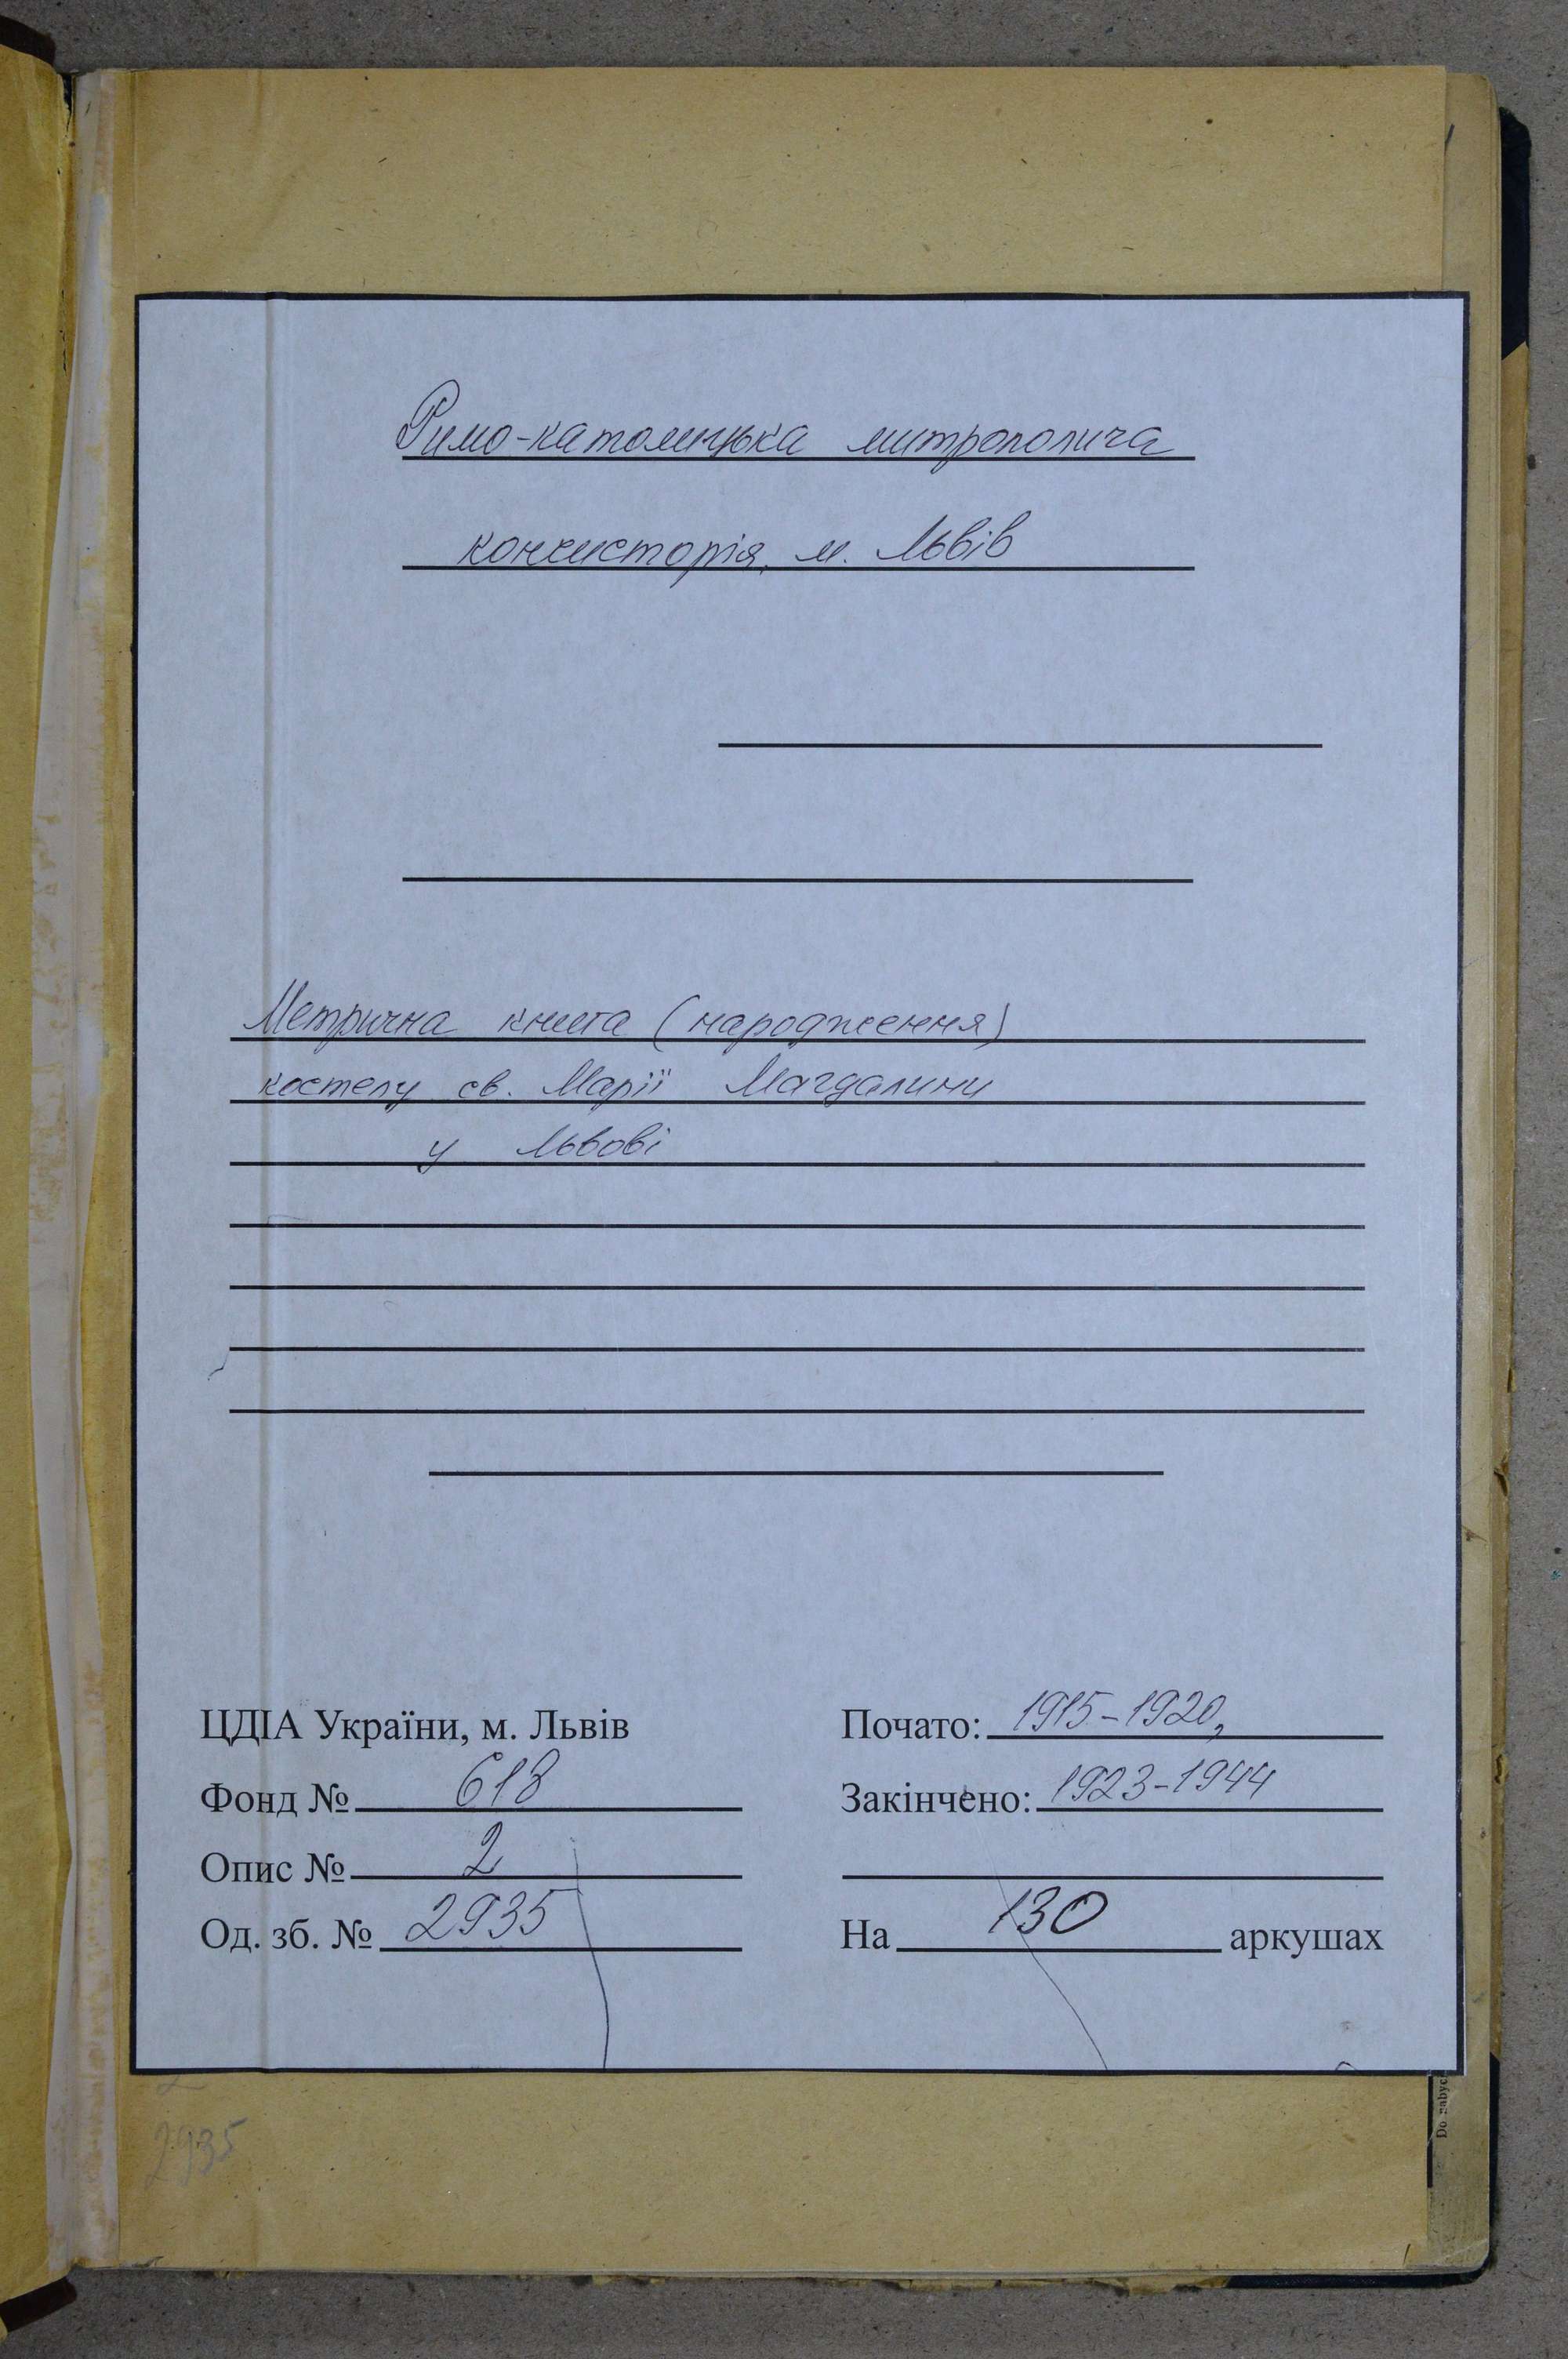 Римо-католицька митрополича
консисторія, м. Львів
Метрична книга (народження)
костелу св. Марії Магдалини
у Львові
ЦДІА України, м. Львів
Фонд № 618
Опис № 2
Од. зб. № 2935
Почато: 1915-1920,
Закінчено: 1923-1944
На 130 аркушах
2
2935
Do nabyc